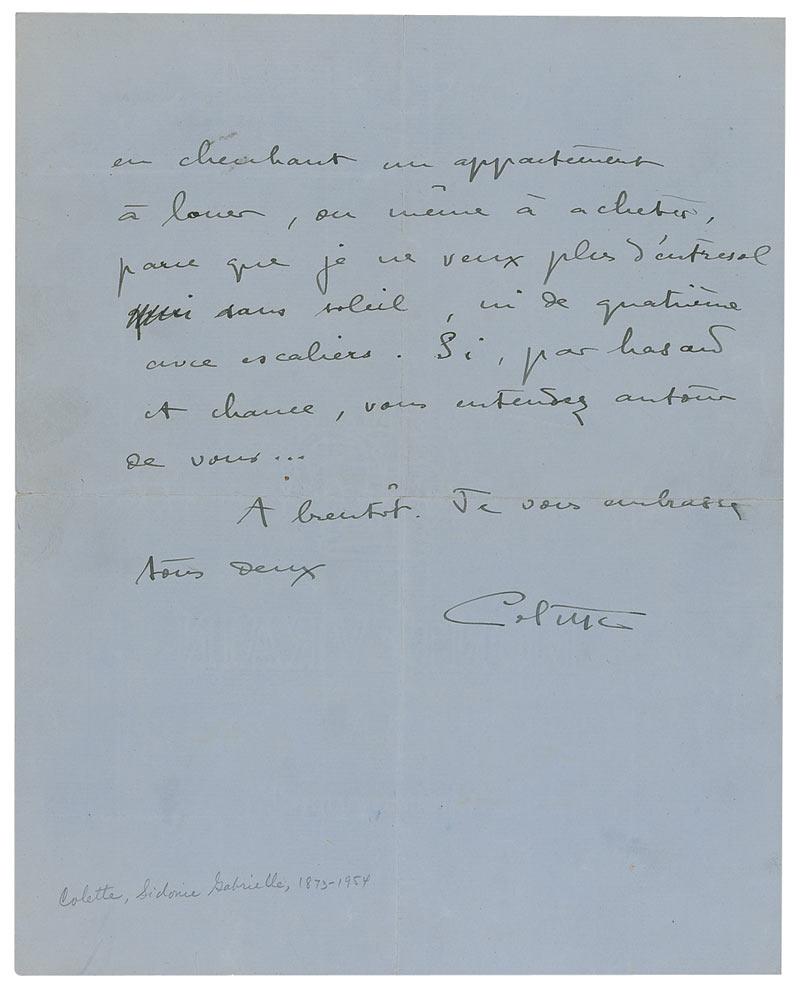 en cherchant un appartement
à louer, ou même à acheter,
parce que je ne veux plus d'entresol
sans soleil, ni de quatrième
avec escaliers. Si, par hasard
et chance, vous entendez autour
de vous...
A bientôt. Je vous embrasse
tous deux
Colette
Colette, Sidonie Gabrielle, 1873-1954